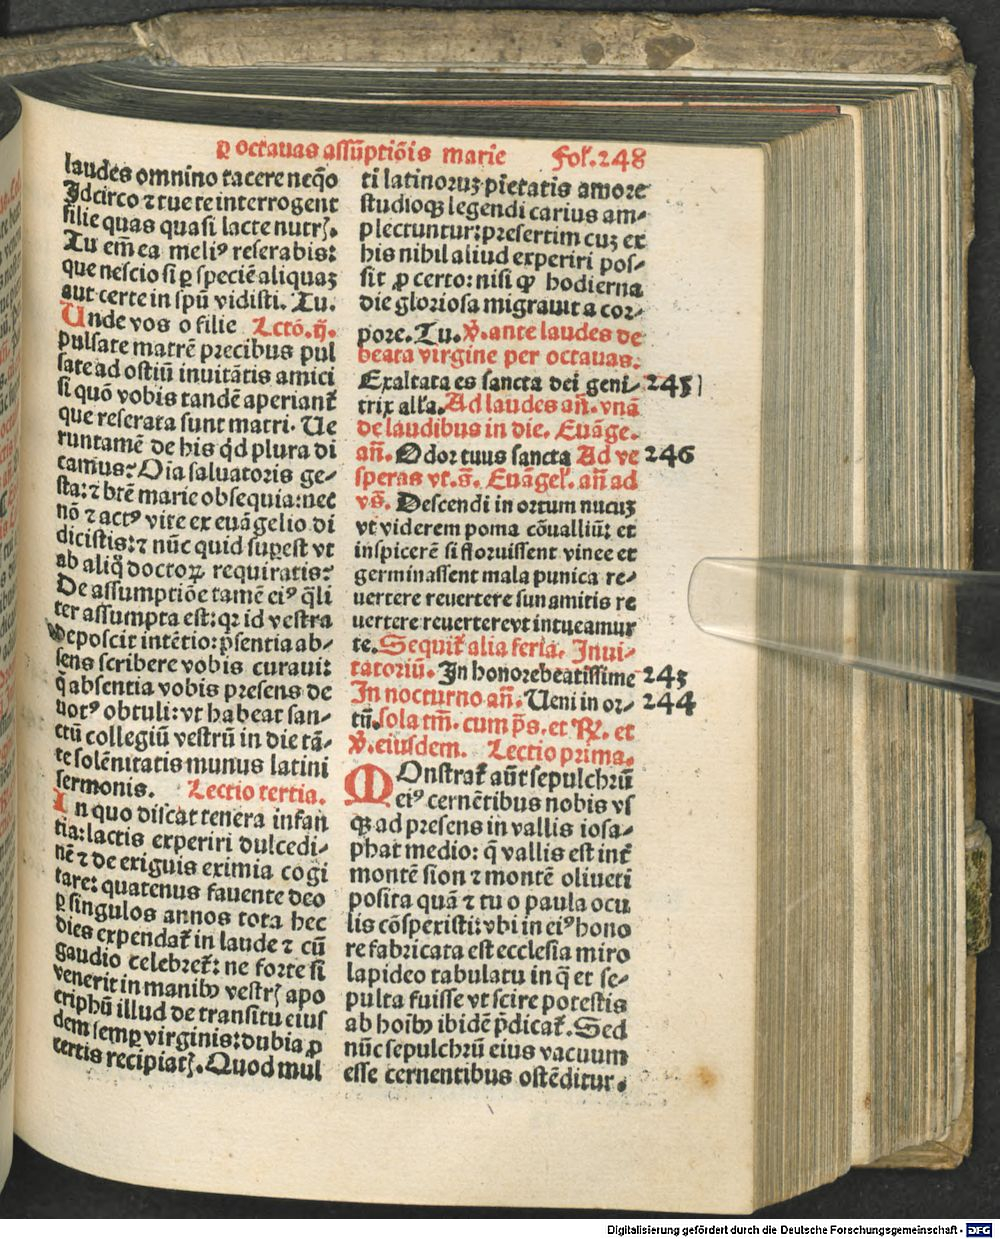 ꝑ octauas assũptiõis marie Fol̃.248
laudes omnino tacere neq̃o
Idcirco ⁊ tu ete interrogent
filie quas quasi lacte nutrꝭ.
Tu em̃ ea meliꝰ reserabis:
que nescio si ꝑ speciẽ aliquaꝫ
aut certe in spũ vidisti. Tu.
Unde vos o filie Lctõ.ij.
pulsate matrẽ precibus pul
sate ad ostiũ inuitãtis amici
si quõ vobis tandẽ aperiant̃
que reserata sunt matri. Ue
runtamẽ de his q̃d plura di
camus? Oia saluatoris ge⸗
sta: ⁊ btẽ marie obsequia: nec
nõ ⁊ actꝰ vite ex euãgelio di
dicistis: ⁊ nũc quid suꝑest vt
ab aliq̃ doctoꝝ requiratis?
De assumptiõe tamẽ eiꝰ q̃li
ter assumpta est: qꝛ id vestra
deposcit intẽtio: p̃sentia ab⸗
sens scribere vobis curaui:
q̃ absentia vobis presens de
uotꝰ obtuli: vt habeat san⸗
ctũ collegiũ vestrũ in die tã⸗
te solẽnitatis munus latini
sermonis. Lectio tertia.
In quo discat tenera infan
tia: lactis experiri dulcedi⸗
nẽ ⁊ de exiguis eximia cogi
tare: quatenus fauente deo
ꝑ singulos annos tota hec
dies expendat̃ in laude ⁊ cũ
gaudio celebret̃: ne forte si
venerit in manibꝰ vestrꝭ apo
criphũ illud de transitu eius
dem semꝑ virginis: dubia ꝓ
certis recipiatꝭ. Quod mul
ti latinoruꝫ pietatis amore
studioqꝫ legendi carius am⸗
plectuntur: presertim cuꝫ ex
his nihil aliud experiri pos⸗
sit ꝓ certo: nisi ꝙ hodierna
die gloriosa migrauit a cor⸗
pore. Tu. ℣. ante laudes de
beata virgine per octauas.
Exaltata es sancta dei geni⸗ 245
trix all'a. Ad laudes añ. vnã
de laudibus in die. Euãge.
añ. Odor tuus sancta Ad ve 246
speras vt.s̃. Euãgel̃. añ ad
vs̃. Descendi in ortum nucuꝫ
vt viderem poma cõualliũ: et
inspicerẽ si floruissent vinee et
germinassent mala punica re⸗
uertere reuertere sunamitis re
uertere reuertere vt intueamur
te. Sequit̃ alia feria. Inui⸗
tatoriũ. In honore beatissime 245
In nocturno añ. Ueni in or⸗ 244
tũ. sola tm̃. cum p̃s. et ℞. et
℣. eiusdem. Lectio prima.
MOnstrat̃ aũt sepulchrũ
eiꝰ cernẽtibus nobis vs
qꝫ ad presens in vallis iosa⸗
phat medio: q̃ vallis est int̃
montẽ sion ⁊ montẽ oliueti
posita quã ⁊ tu o paula ocu
lis cõspexisti: vbi in eiꝰ hono
re fabricata est ecclesia miro
lapideo tabulatu in q̃ et se⸗
pulta fuisse vt scire potestis
ab hoibꝰ ibidẽ p̃dicat̃. Sed
nũc sepulchrũ eius vacuum
esse cernentibus ostẽditur.
Digitalisierung gefördert durch die Deutsche Forschungsgemeinschaft - DFG